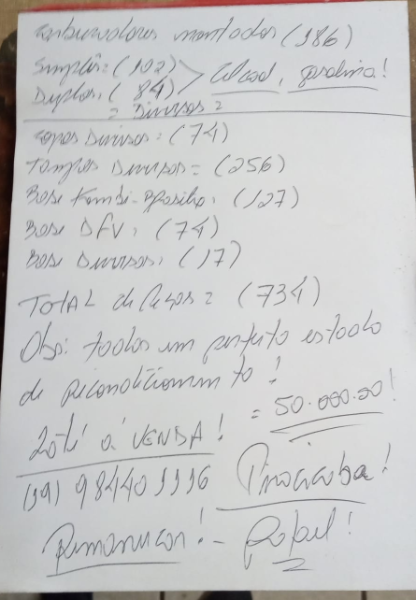 Carburadores montados (186)
Simples: (102) > álcool, gasolina!
Duplos: (84)
= Diversos =
Copos Diversos: (74)
Tampas Diversos = (256)
Base Kombi-Brasília: (127)
Base DFV: (74)
Base Diversos: (17)
TOTAL de Peças = (734)
Obs: todos em perfeito estado
de recondicionamento!
= 50.000.00!
Lote à VENDA!
(19) 984409996 Piracicaba!
!- Rafael!